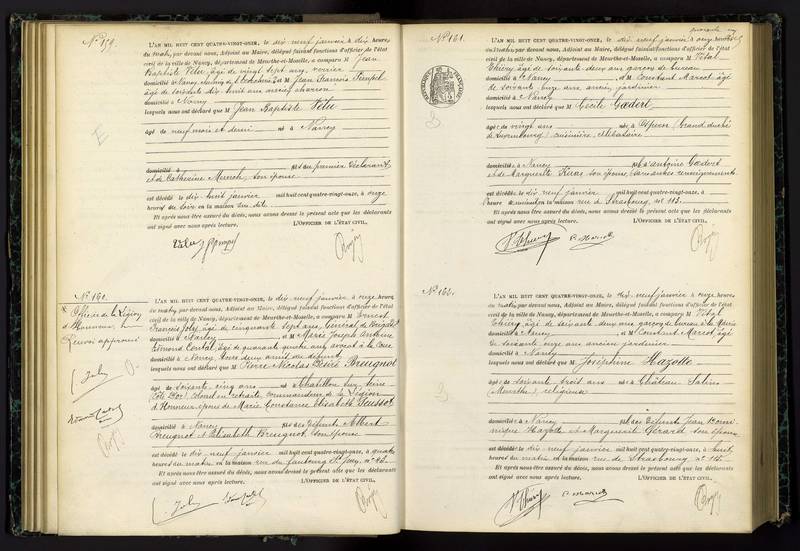 N° 159.
L'AN MIL HUIT CENT QUATRE-VINGT-ONZE, le dix neuf janvier à dix heures
du matin, par devant nous, Adjoint au Maire, délégué faisant fonctions d'officier de l'état
civil de la ville de Nancy, département de Meurthe-et-Moselle, a comparu M Jean
Baptiste Pelu, âgé de vingt sept ans, verrier
domicilié à Nancy et M Jean François
âgé de soixante dix huit ans ancien charron
domicilié à Nancy
lesquels nous ont déclaré que M Jean Baptiste Pelu
âgé de neuf mois et demi né à Nancy
domicilié à fils du premier déclarant
et de Catherine Munch, son épouse
est décédé le dix huit janvier mil huit cent quatre-vingt-onze, à onze
heures du soir en la maison sus dite
Et après nous être assuré du décès, nous avons dressé le présent acte que les déclarants
ont signé avec nous après lecture. L'OFFICIER DE L'ÉTAT CIVIL,
N° 160.
Officier de la Légion
d'Honneur
Renvoi approuvé
L'AN MIL HUIT CENT QUATRE-VINGT-ONZE, le dix neuf janvier à onze heures
du matin, par devant nous, Adjoint au Maire, délégué faisant fonctions d'officier de l'état
civil de la ville de Nancy, département de Meurthe-et-Moselle, a comparu M Ernest
François Joly, âgé de cinquante sept ans, Général de Brigade
domicilié à et M Marie Joseph Antoine
Edmond Contal, âgé de quarante ans avocat à la Cour
domicilié à Nancy, tous deux amis du défunt
lesquels nous ont déclaré que M Pierre Nicolas Désiré Breugnot
âgé de soixante cinq ans né à Chatillon sur Seine
(Côte d'Or) Colonel en retraite, commandeur de la Légion
d'Honneur, époux de Marie Constance Elisabeth
domicilié à Nancy fils des défunts Albert
Breugnot et Elisabeth Breugnot, son épouse
est décédé le dix neuf janvier mil huit cent quatre-vingt-onze, à quatre
heures du matin en la maison rue du faubourg St Jean, n° 42.
Et après nous être assuré du décès, nous avons dressé le présent acte que les déclarants
ont signé avec nous après lecture. L'OFFICIER DE L'ÉTAT CIVIL,
N° 161.
L'AN MIL HUIT CENT QUATRE-VINGT-ONZE, le dix neuf janvier à onze heures
du matin par devant nous, Adjoint au Maire, délégué faisant fonctions d'officier de l'état
civil de la ville de Nancy, département de Meurthe-et-Moselle, a comparu M Vital
Thiery, âgé de soixante deux ans garçon de bureau
domicilié à Nancy et M Constant Marcot âgé
de soixante onze ans, ancien jardinier
domicilié à Nancy
lesquels nous ont déclaré que M Cécile Gœdert
âgée de vingt ans née à (Grand duché
de Luxembourg) cuisinière, célibataire
domiciliée à Nancy fille d'Antoine Gœdert
et de Marguerite son épouse, sans autres renseignements
est décédée le dix neuf janvier mil huit cent quatre-vingt-onze, à
heure du matin en la maison rue de Strasbourg, n° 113.
Et après nous être assuré du décès, nous avons dressé le présent acte que les déclarants
ont signé avec nous après lecture. L'OFFICIER DE L'ÉTAT CIVIL,
N° 162.
L'AN MIL HUIT CENT QUATRE-VINGT-ONZE, le dix neuf janvier à onze heures
du matin, par devant nous, Adjoint au Maire, délégué faisant fonctions d'officier de l'état
civil de la ville de Nancy, département de Meurthe-et-Moselle, a comparu M Vital
Thiery, âgé de soixante deux ans garçon de bureau à la Mairie
domicilié à Nancy et M Constant Marcot, âgé
de soixante onze ans ancien jardinier
domicilié à Nancy
lesquels nous ont déclaré que M Joséphine Hazotte
âgée de soixante trois ans née à Château Salins
(Meurthe) religieuse
domiciliée à Nancy fille des défunts Jean Domi
nique Hazotte et Marguerite Gérard son épouse
est décédée le dix neuf janvier mil huit cent quatre-vingt-onze, à huit
heures du matin, en la maison rue de Strasbourg, n°
Et après nous être assuré du décès, nous avons dressé le présent acte que les déclarants
ont signé avec nous après lecture. L'OFFICIER DE L'ÉTAT CIVIL,